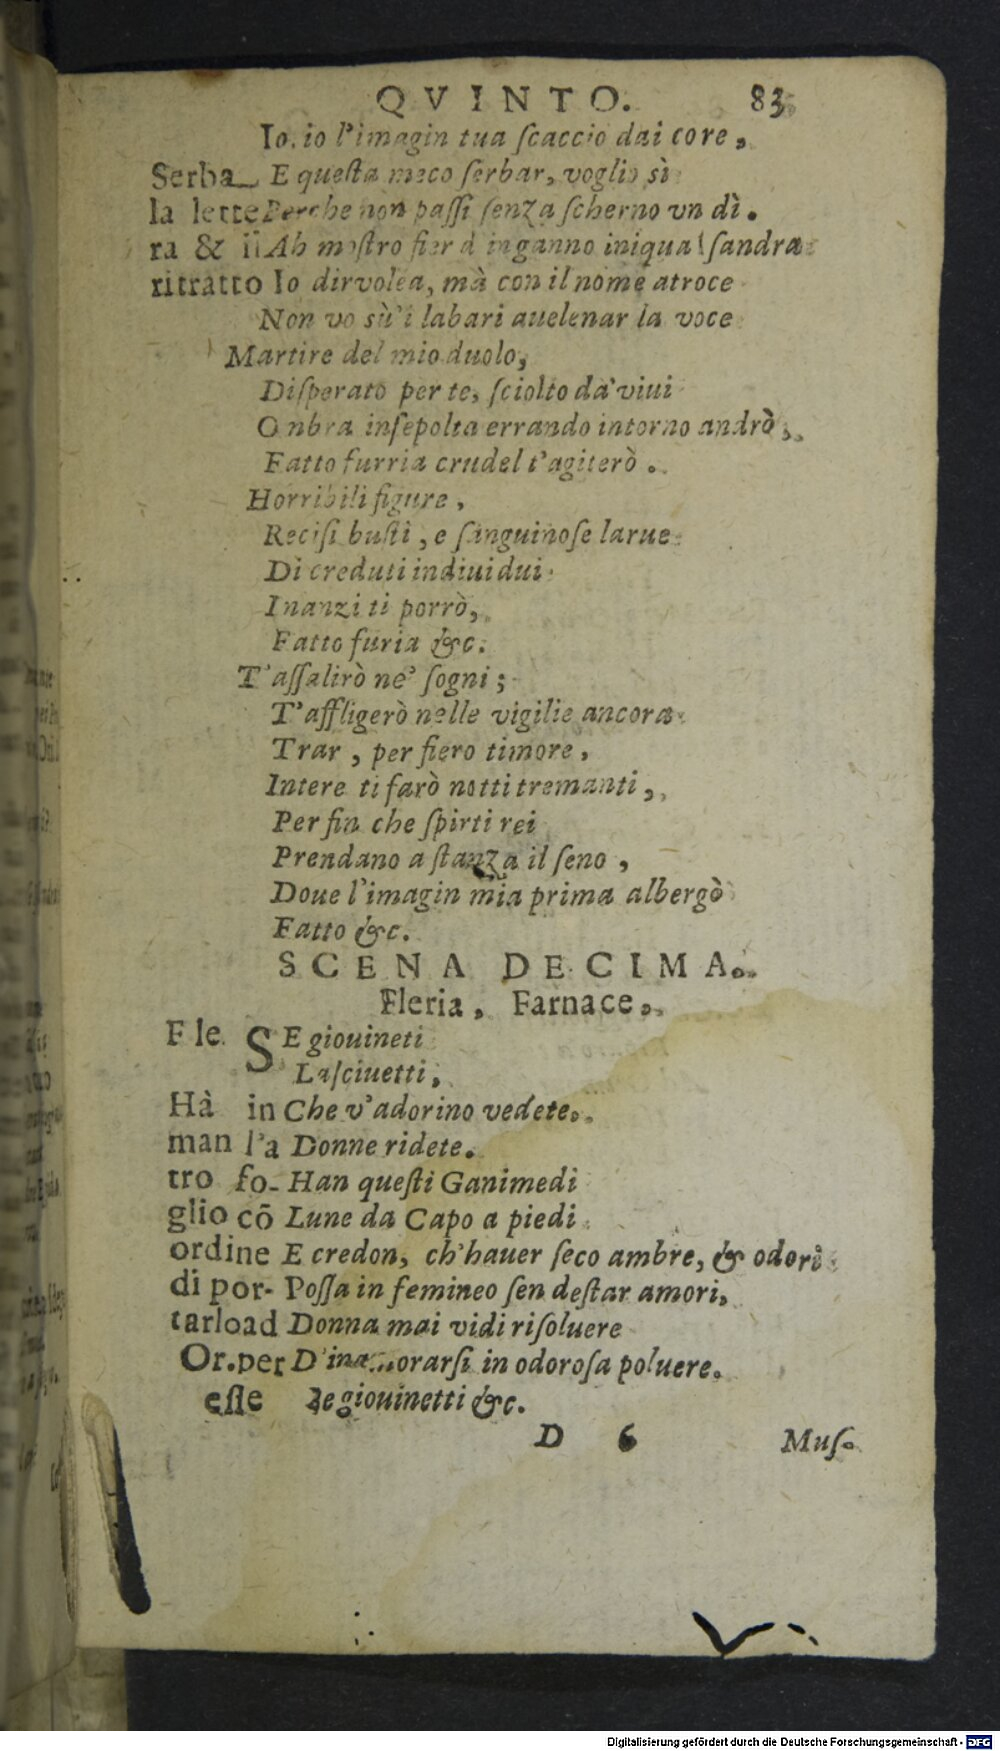 QVINTO. 83
Io, io l'imagin tua ſcaccio dai core,
Serba E queſta meco ſerbar, voglio sì
la lette Perche non paſſi ſenza ſcherno vn dì.
ra & il Ah moſtro fier d'inganno iniqua Iſandra
ritratto Io dir volea, mà con il nome atroce
Non vo sù'i labari auelenar la voce
Martire del mio duolo,
Diſperato per te, ſciolto da' viui
Onbra inſepolta errando intorno andrò,
Fatto furria crudel t'agiterò.
Horribili figure,
Reciſi buſti, e ſanguinoſe larue
Di creduti indiuidui
Inanzi ti porrò,
Fatto furia &c.
T'aſſalirò ne' ſogni;
T'affligerò nelle vigilie ancora
Trar, per fiero timore,
Intere ti farò notti tremanti,
Per fin che ſpirti rei
Prendano a ſtanza il ſeno,
Doue l'imagin mia prima albergò
Fatto &c.
SCENA DECIMA.
Fleria, Farnace.
Fle. SE giouineti
Laſciuetti,
Hà in Che v'adorino vedete.
man l'a Donne ridete.
tro fo- Han queſti Ganimedi
glio cō Lune da Capo a piedi
ordine E credon, ch'hauer ſeco ambre, & odori
di por- Poſſa in femineo ſen deſtar amori,
tarload Donna mai vidi riſoluere
Or.per D'inamorarſi in odoroſa poluere.
eſſe Se giouinetti &c.
D 6 Muſ-
Digitalisierung gefördert durch die Deutsche Forschungsgemeinschaft - DFG